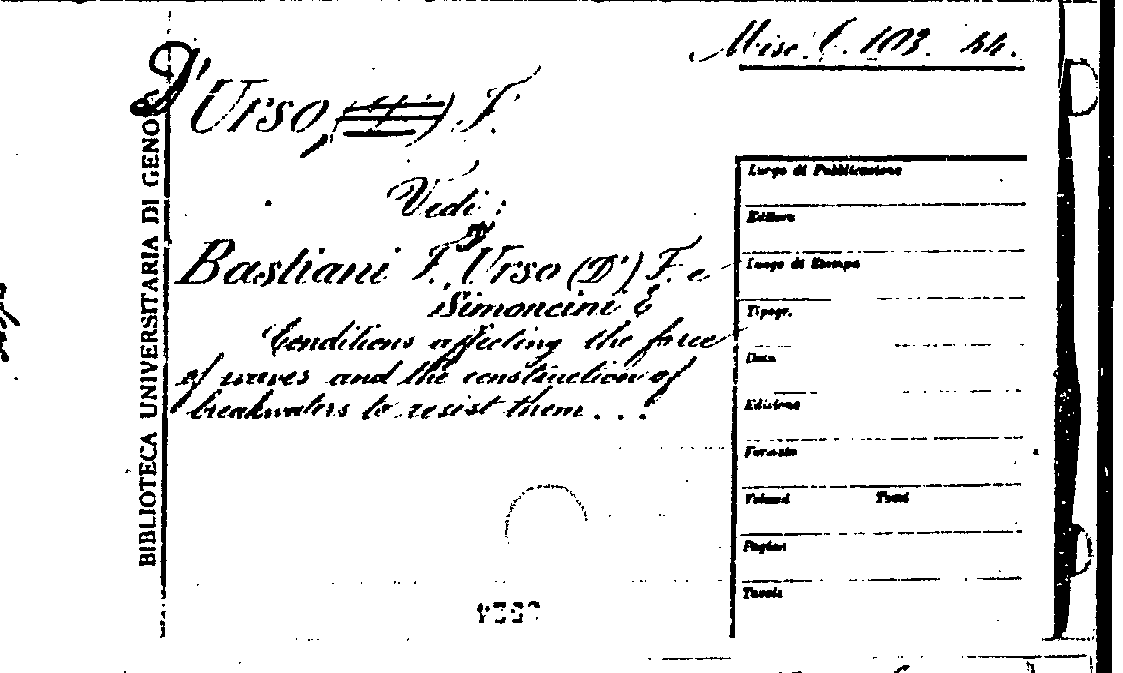 Misc. C. 103. 44.
D'Urso, F.
Vedi:
Bastiani F., D'Urso (D') F. e
Simoncini E
Conditions affecting the force
of waves and the construction of
breakwaters to resist them...
BIBLIOTECA UNIVERSITARIA DI GENOVA
Luogo di Pubblicazione
Editore
Luogo di Stampa
Tipogr.
Data
Edizione
Formato
Volumi Tomi
Pagine
Tavole